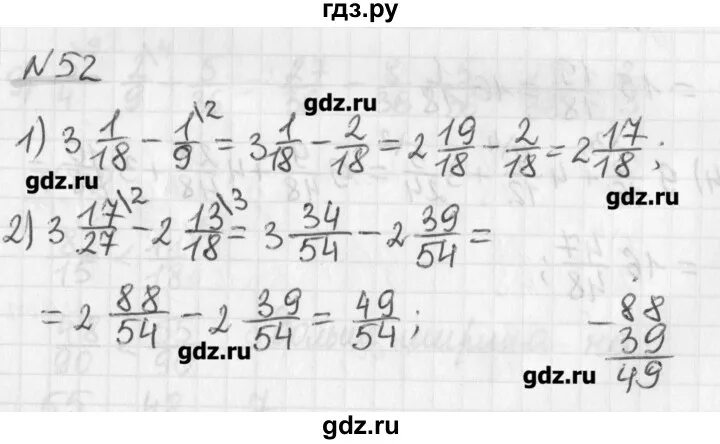 гдз.ру
N 52
gdz.ru
1) 3 1/18 − 1/9 \2 = 3 1/18 − 2/18 = 2 19/18 − 2/18 = 2 17/18 ;
gdz.ru
gdz.ru
2) 3 17/27 \2 − 2 13/18 \3 = 3 34/54 − 2 39/54 =
= 2 88/54 − 2 39/54 = 49/54 ;
gdz.ru
− 88
39
49
gdz.ru
gdz.ru